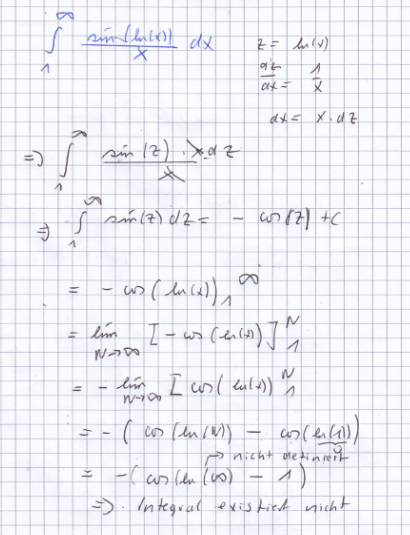 ∫₁^∞ sin(ln(x))/x dx
z = ln(x)
dz/dx = 1/x
dx = x · dz
=> ∫₁^∞ sin(z) · x dz / x
=> ∫₁^∞ sin(z) dz = - cos(z) + C
= - cos(ln(x)) ₁^∞
= lim N→∞ [- cos(ln(x))]₁^N
= - lim N→∞ [cos(ln(x))₁^N
= - (cos(ln(N)) - cos(ln(1))) 0
↱ nicht definiert
= -(cos(ln(∞) - 1)
=> . Integral existiert nicht